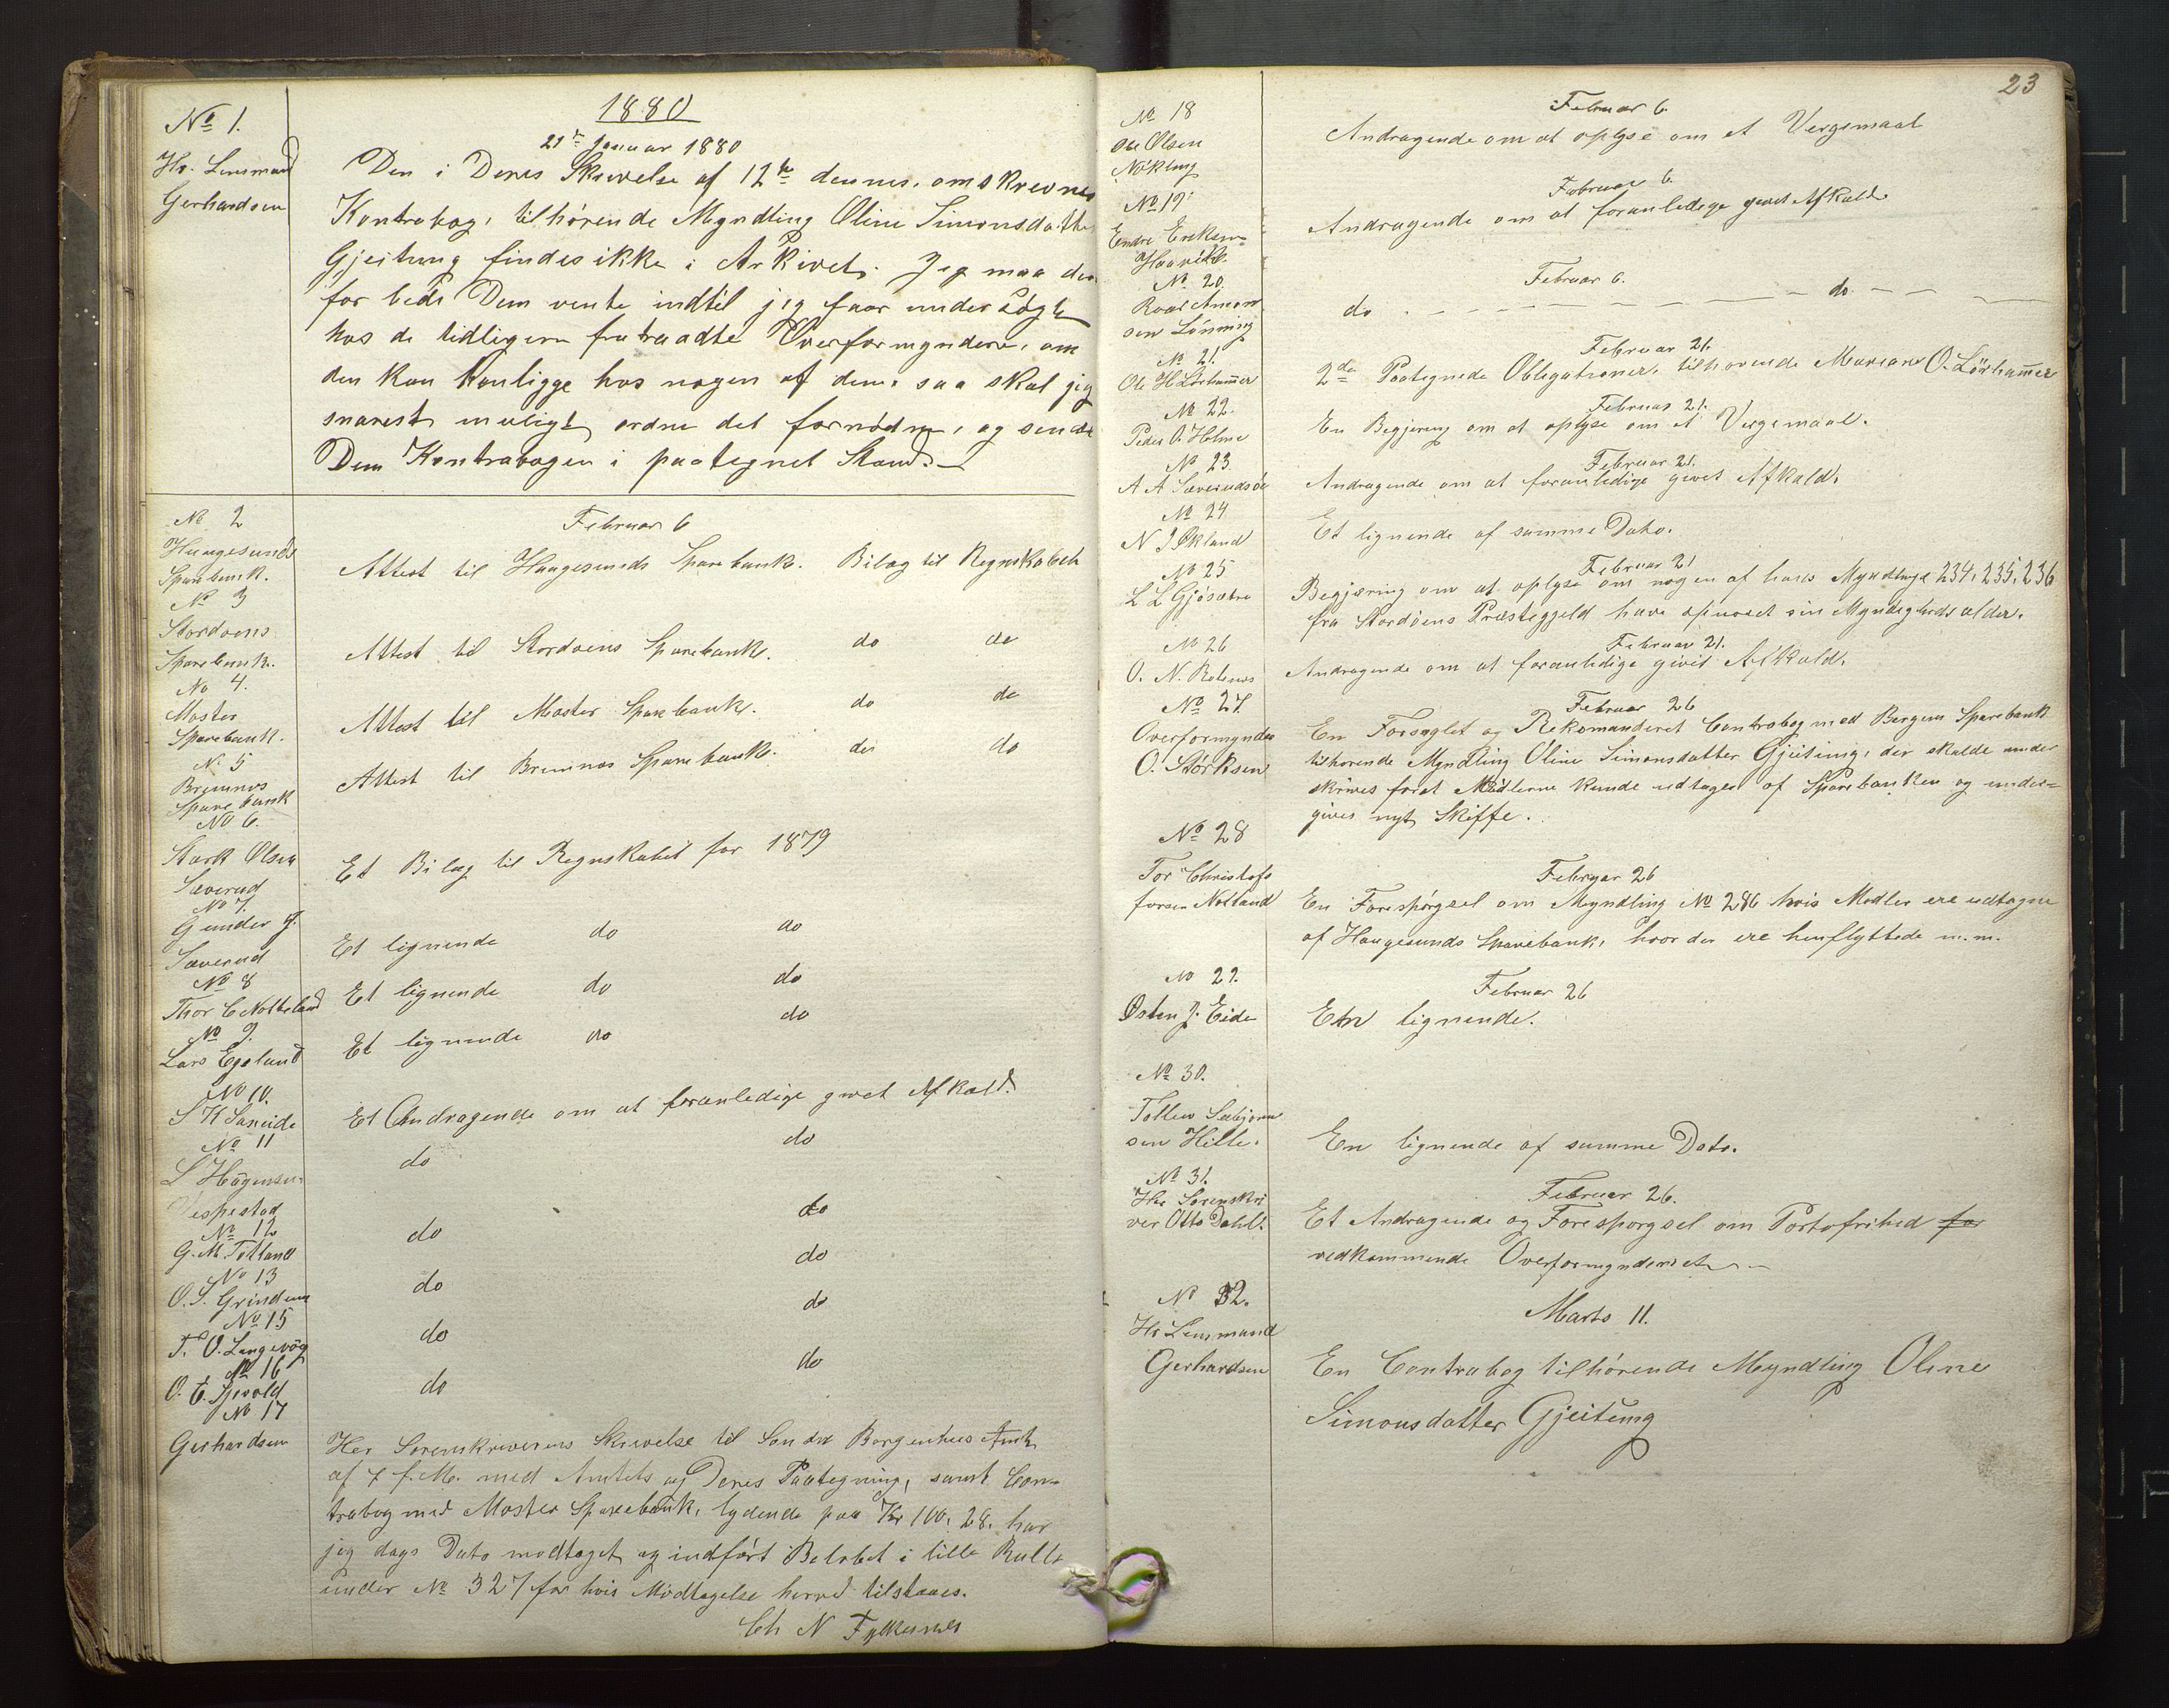 1880
No 1.
Hr. Lensmand
Gerhardsen
21de Januar 1880
Den i Deres Skrivelse af 12te dennes, omskrevne
Kontrabog, tilhørende Myndling Oline Simonsdatter
Gjeitung findes ikke i Arkivet. Jeg maa der
for bede Dem vente indtil jeg faar undersøgt
hos de tidligere fratraadte Overformyndere, om
den kan henligge hos nogen af dem, saa skal jeg
snarest muligt ordne det fornødne, og sende
Dem Kontrabogen i paategnet Stand.
No 2
Februar 6
Haugesunds
Sparebank.
Attest til Haugesunds Sparebank. Bilag til Regnskabet
No 3
Stordøens
Sparebank.
Attest til Stordøens Sparebank. do do
No 4.
Moster
Sparebank.
Attest til Moster Sparebank. do do
No 5
Bremnes
Sparebank
Attest til Bremnes Sparebank. do do
No 6.
Størk Olsen
Sæverud
Et Bilag til Regnskabet for 1879
No 7.
Gunder J.
Sæverud
Et lignende do do
No 8
Thor C Notteland
Et lignende do do
No 9.
Lars Egeland
Et lignende do do
No 10.
S K Saneide
Et Andragende om at foranledige givet Afkald.
No 11
S Hågensen
Vespestad
do do
No 12
G. M. Totland
do do
No 13
O. S. Grindem
do do
No 15
T. O. Langevåg
do do
No 16
O. E. Gjerold
do do
No 17
Gerhardsen
Her Sorenskriverens Skrivelse til Søndre Bergenhus Amt
af 7 f. M. med Amtets og Deres Paategning, samt Con-
trabog med Moster Sparebank, lydende paa Kr 100,28, har
jeg dags Dato modtaget og indført Beløbet i lille Rulle
under No 327 for hvis Modtagelse herved tilstaaes.
Ch N Fylkesnes
23
No 18
Ole Olsen
Nøkling
Februar 6.
Andragende om at oplyse om et Vergemaal
No 19.
Endre Eriksen
Haavik.
Februar 6.
Andragende om at foranledige givet Afkald.
No. 20.
Roal Amon
sen Lønning
Februar 6.
do - - - - - - - do. - - -
No 21.
Ole H Lørhammer
Februar 21.
2de Paategnede Obligationer, tilhørende Mariane O. Lørhammer
No 22.
Peder O. Holme
Februar 21.
En Begjering om at oplyse om et Vergemaal.
No 23.
A A Sæverudsøe
Februar 21.
Andragende om at foranledige givet Afkald.
No 24
N J Økland
Et lignende af samme Dato.
No 25
L L Gjøsætre
Februar 21
Begjæring om at oplyse om nogen af hans Myndlinge 234, 235, 236
fra Stordøens Præstegjeld have opnaaet sin Myndighedsalder.
No 26
O. N. Rolsnes
Februar 21.
Andragende om at foranledige givet Afkald.
No 27.
Overformynder
O. Størksen
Februar 26
En Forseglet og Rekomanderet Contrabog med Bergens Sparebank
tilhørende Myndling Oline Simonsdatter Gjeitung, der skulde under
skrives førat Midlerne kunde udtages af Sparebanken og under-
gives nyt Skifte.
No 28
Tor Christof
fersen Notland
Februar 26
En Forespørgsel om Myndling No 286 hvis Midler ere udtagne
af Haugesunds Sparebank, hvor de ere henflyttede m. m.
No 29.
Østen J. Eide
Februar 26
En lignende.
No 30.
Tollew Sæbjørn
sen Hille.
En lignende af samme Dato.
No 31.
Hr Sorenskri
ver Otto Dahll.
Februar 26.
Et Andragende og Forespørgsel om Portofrihed for
vedkommende Overformynderiet
No 32.
Hr Lensmand
Gerhardsen
Marts 11.
En Contrabog tilhørende Myndling Oline
Simonsdatter Gjeitung